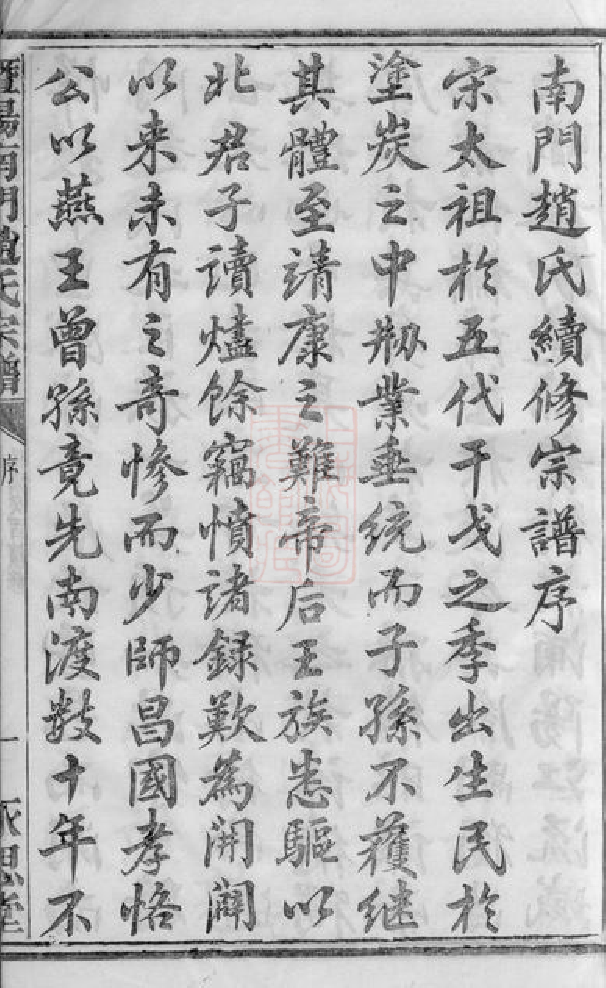 南門趙氏續修宗譜序
宋太祖於五代干戈之季出生民於
塗炭之中刱業垂統而子孫不獲繼
其體至靖康之難帝后王族悉驅以
北君子讀燼餘竊憤諸録歎為開闢
以来未有之奇惨而少師昌國孝恪
公以燕王曾孫竟先南渡數十年不
暨陽南門趙氏宗譜
序
一
永思堂